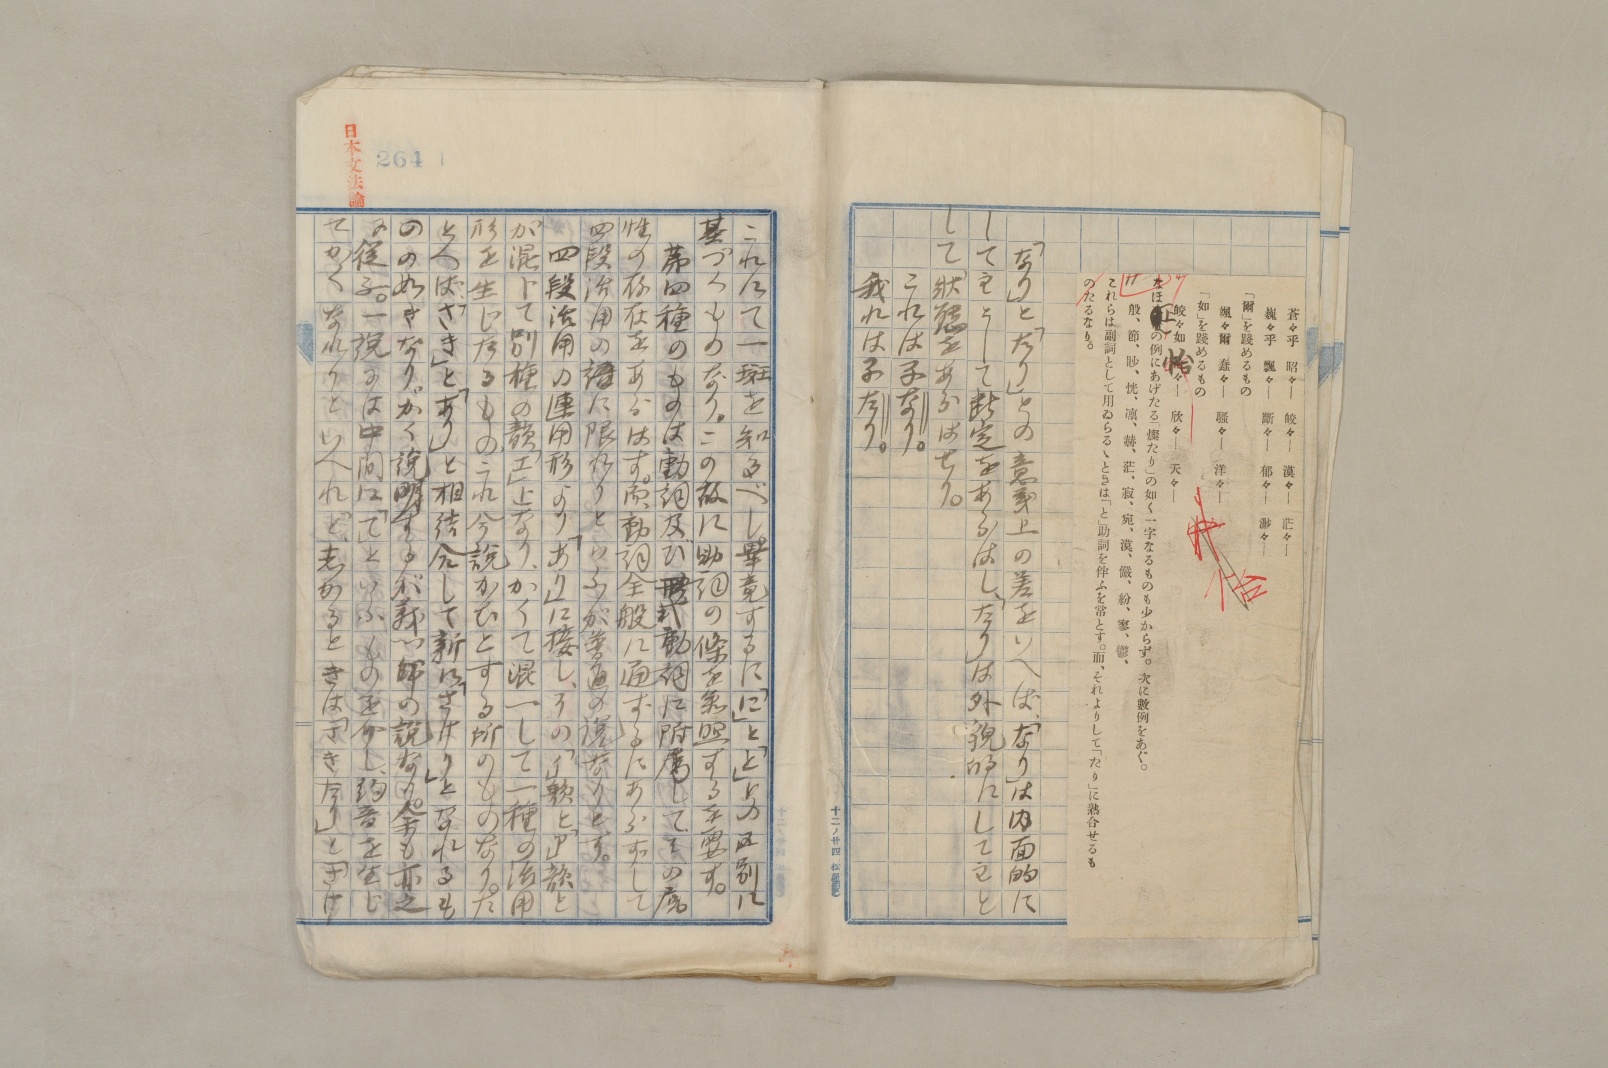 蒼々乎 昭々— 皎々— 漠々— 茫々—
巍々乎 飄々— 斷々— 郁々— 渺々—
「爾」を踐めるもの
颯々爾 蠢々— 騷々— 洋々—
「如」を踐めるもの
皎々如 怡々— 欣々— 夭々—
怡
なほ上の例にあげたる「燦たり」の如く一字なるものも少からず。次に數例をあぐ。
殷、節、眇、恍、凛、赫、茫、寂、宛、漠、儼、紛、寥、鬱、
これらは副詞として用ゐらるゝときは「と」助詞を伴ふを常とす。而、それよりして「たり」に熟合せるも
のたるなり。
怡
「なり」と「たり」との意義上の差をいへば、「なり」は内面的に
して主として斷定をあらはし、「たり」は外貌的にして主と
して狀態をあらはせり。
これは子なり。
我れは子たり。
十二ノ廿四
日本文法論
264
これにて一斑を知るべし。畢竟するに「に」と「と」との区別に
基づくものなり。この故に助詞の條を参照するを要す。
第四種のものは動詞及び形式動詞に附属してその属
性の存在をあらはす。而、動詞全般に通ずるにあらずして
四段活用の語に限れりといふが普通の説なりとす。
四段活用の連用形より「あり」に接し、その「イ」韻と「ア」韻と
が混じて別種の韻「エ」となり、かくて混一して一種の活用
形を生じたるものこれ今説かむとする所のものなり。た
とへば「さき」と「あり」と相結合して新に「さけり」となれるも
のの如きなり。かく説明するが義門師の説なり。余も亦之
に従ふ。一説には中間に「て」といふものを介し、約音を生じ
てかくなれりといへれど、志かるときは「さきたり」と「さけ